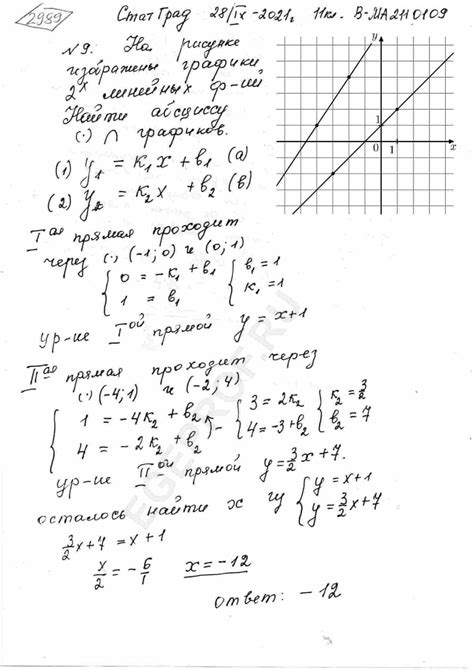 2989
СтатГрад 28/IX-2021г. 11кл. В-МА2110109
N9. На рисунке
изображены графики
2х линейных ф-ий
Найти абсциссу
(·) ∩ графиков.
(1) y₁ = k₁x + b₁ (a)
(2) y₂ = k₂x + b₂ (b)
y
1
0
1
x
Iая прямая проходит
через (·) (-1; 0) и (0; 1)
{ 0 = -k₁ + b₁ { b₁ = 1
1 = b₁ k₁ = 1
ур-ие Iой прямой y = x+1
IIая прямая проходит через
(·) (-4; 1) и (-2; 4)
{ 1 = -4k₂ + b₂ - { 3 = 2k₂ { k₂ = 3/2
4 = -2k₂ + b₂ 4 = -3 + b₂ b₂ = 7
ур-ие IIой прямой y = 3/2x + 7.
осталось найти x из { y = x+1
y = 3/2x + 7
3/2x + 7 = x + 1
x/2 = -6/1 x = -12
ответ: -12
EGEPROF.RU